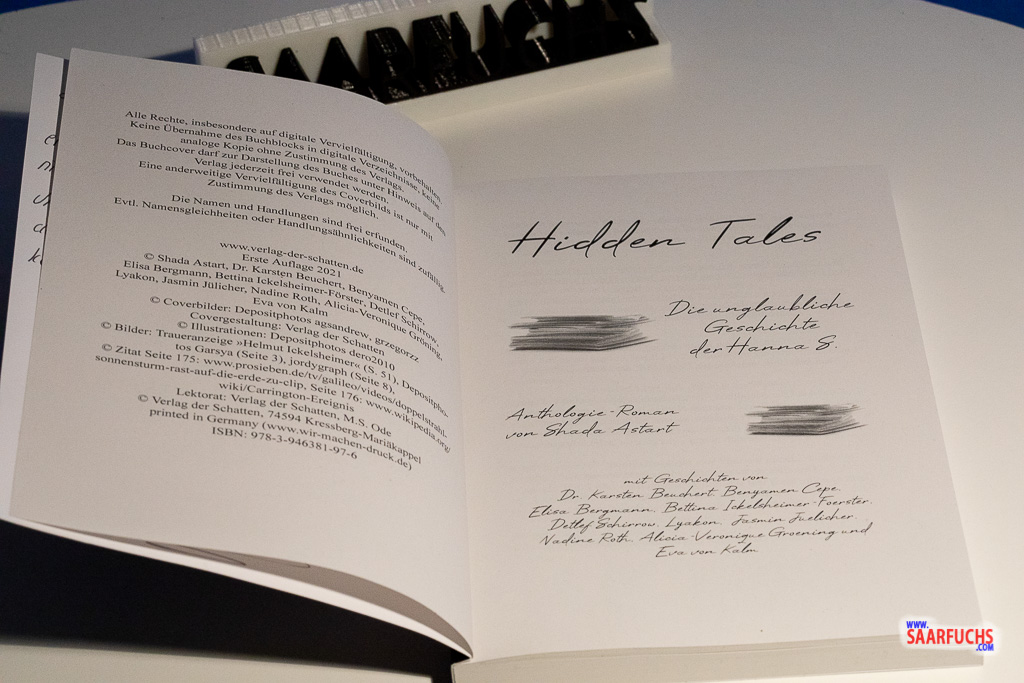 SAARFUCHS
Alle Rechte, insbesondere auf digitale Vervielfältigung, vorbehalten.
Keine Übernahme des Buchblocks in digitale Verzeichnisse, keine
analoge Kopie ohne Zustimmung des Verlags.
Das Buchcover darf zur Darstellung des Buches unter Hinweis auf den
Verlag jederzeit frei verwendet werden.
Eine anderweitige Vervielfältigung des Coverbilds ist nur mit
Zustimmung des Verlags möglich.
Die Namen und Handlungen sind frei erfunden.
Evtl. Namensgleichheiten oder Handlungsähnlichkeiten sind zufällig.
www.verlag-der-schatten.de
Erste Auflage 2021
© Shada Astart, Dr. Karsten Beuchert, Benyamen Cepe,
Elisa Bergmann, Bettina Ickelsheimer-Förster, Detlef Schirrow,
Lyakon, Jasmin Jülicher, Nadine Roth, Alicia-Veronique Gröning,
Eva von Kalm
© Coverbilder: Depositphotos agsandrew, grzegorz
Covergestaltung: Verlag der Schatten
© Illustrationen: Depositphotos dero2010
© Bilder: Traueranzeige »Helmut Ickelsheimer« (S. 51), Depositpho-
tos Garsya (Seite 3), jordygraph (Seite 8),
© Zitat Seite 175: www.prosieben.de/tv/galileo/videos/doppelstrahl-
sonnensturm-rast-auf-die-erde-zu-clip, Seite 176: www.wikipedia.org/
wiki/Carrington-Ereignis
Lektorat: Verlag der Schatten, M.S. Ode
© Verlag der Schatten, 74594 Kressberg-Mariäkappel
printed in Germany (www.wir-machen-druck.de)
ISBN: 978-3-946381-97-6
Hidden Tales
Die unglaubliche
Geschichte
der Hanna S.
Anthologie-Roman
von Shada Astart
mit Geschichten von
Dr. Karsten Beuchert, Benyamen Cepe,
Elisa Bergmann, Bettina Ickelsheimer-Foerster,
Detlef Schirrow, Lyakon, Jasmin Juelicher,
Nadine Roth, Alicia-Veronique Groening und
Eva von Kalm
www.
SAARFUCHS
.com